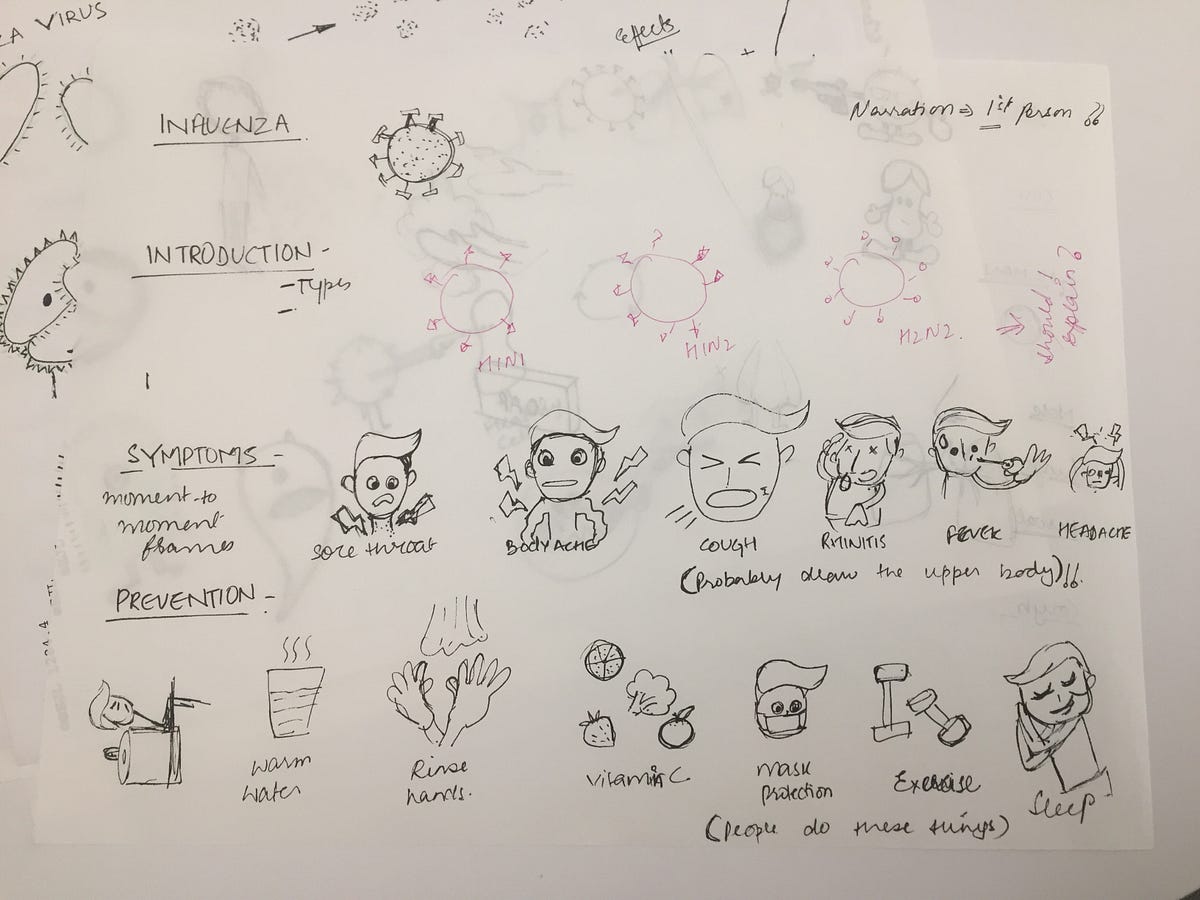 ZA VIRUS
effects
Narration ⇒ 1st Person !!
INFLUENZA
INTRODUCTION -
- Types
-
H1N1
H1N2
H2N2.
should I
explain?
SYMPTOMS -
moment-to
moment
frames
sore throat
BODYACHE
COUGH
RHINITIS
FEVER
HEADACHE
(Probably draw the upper body)!!.
PREVENTION -
warm
water
Rinse
hands.
Vitamin C
mask
protection
Exercise
Sleep
(People do these things)